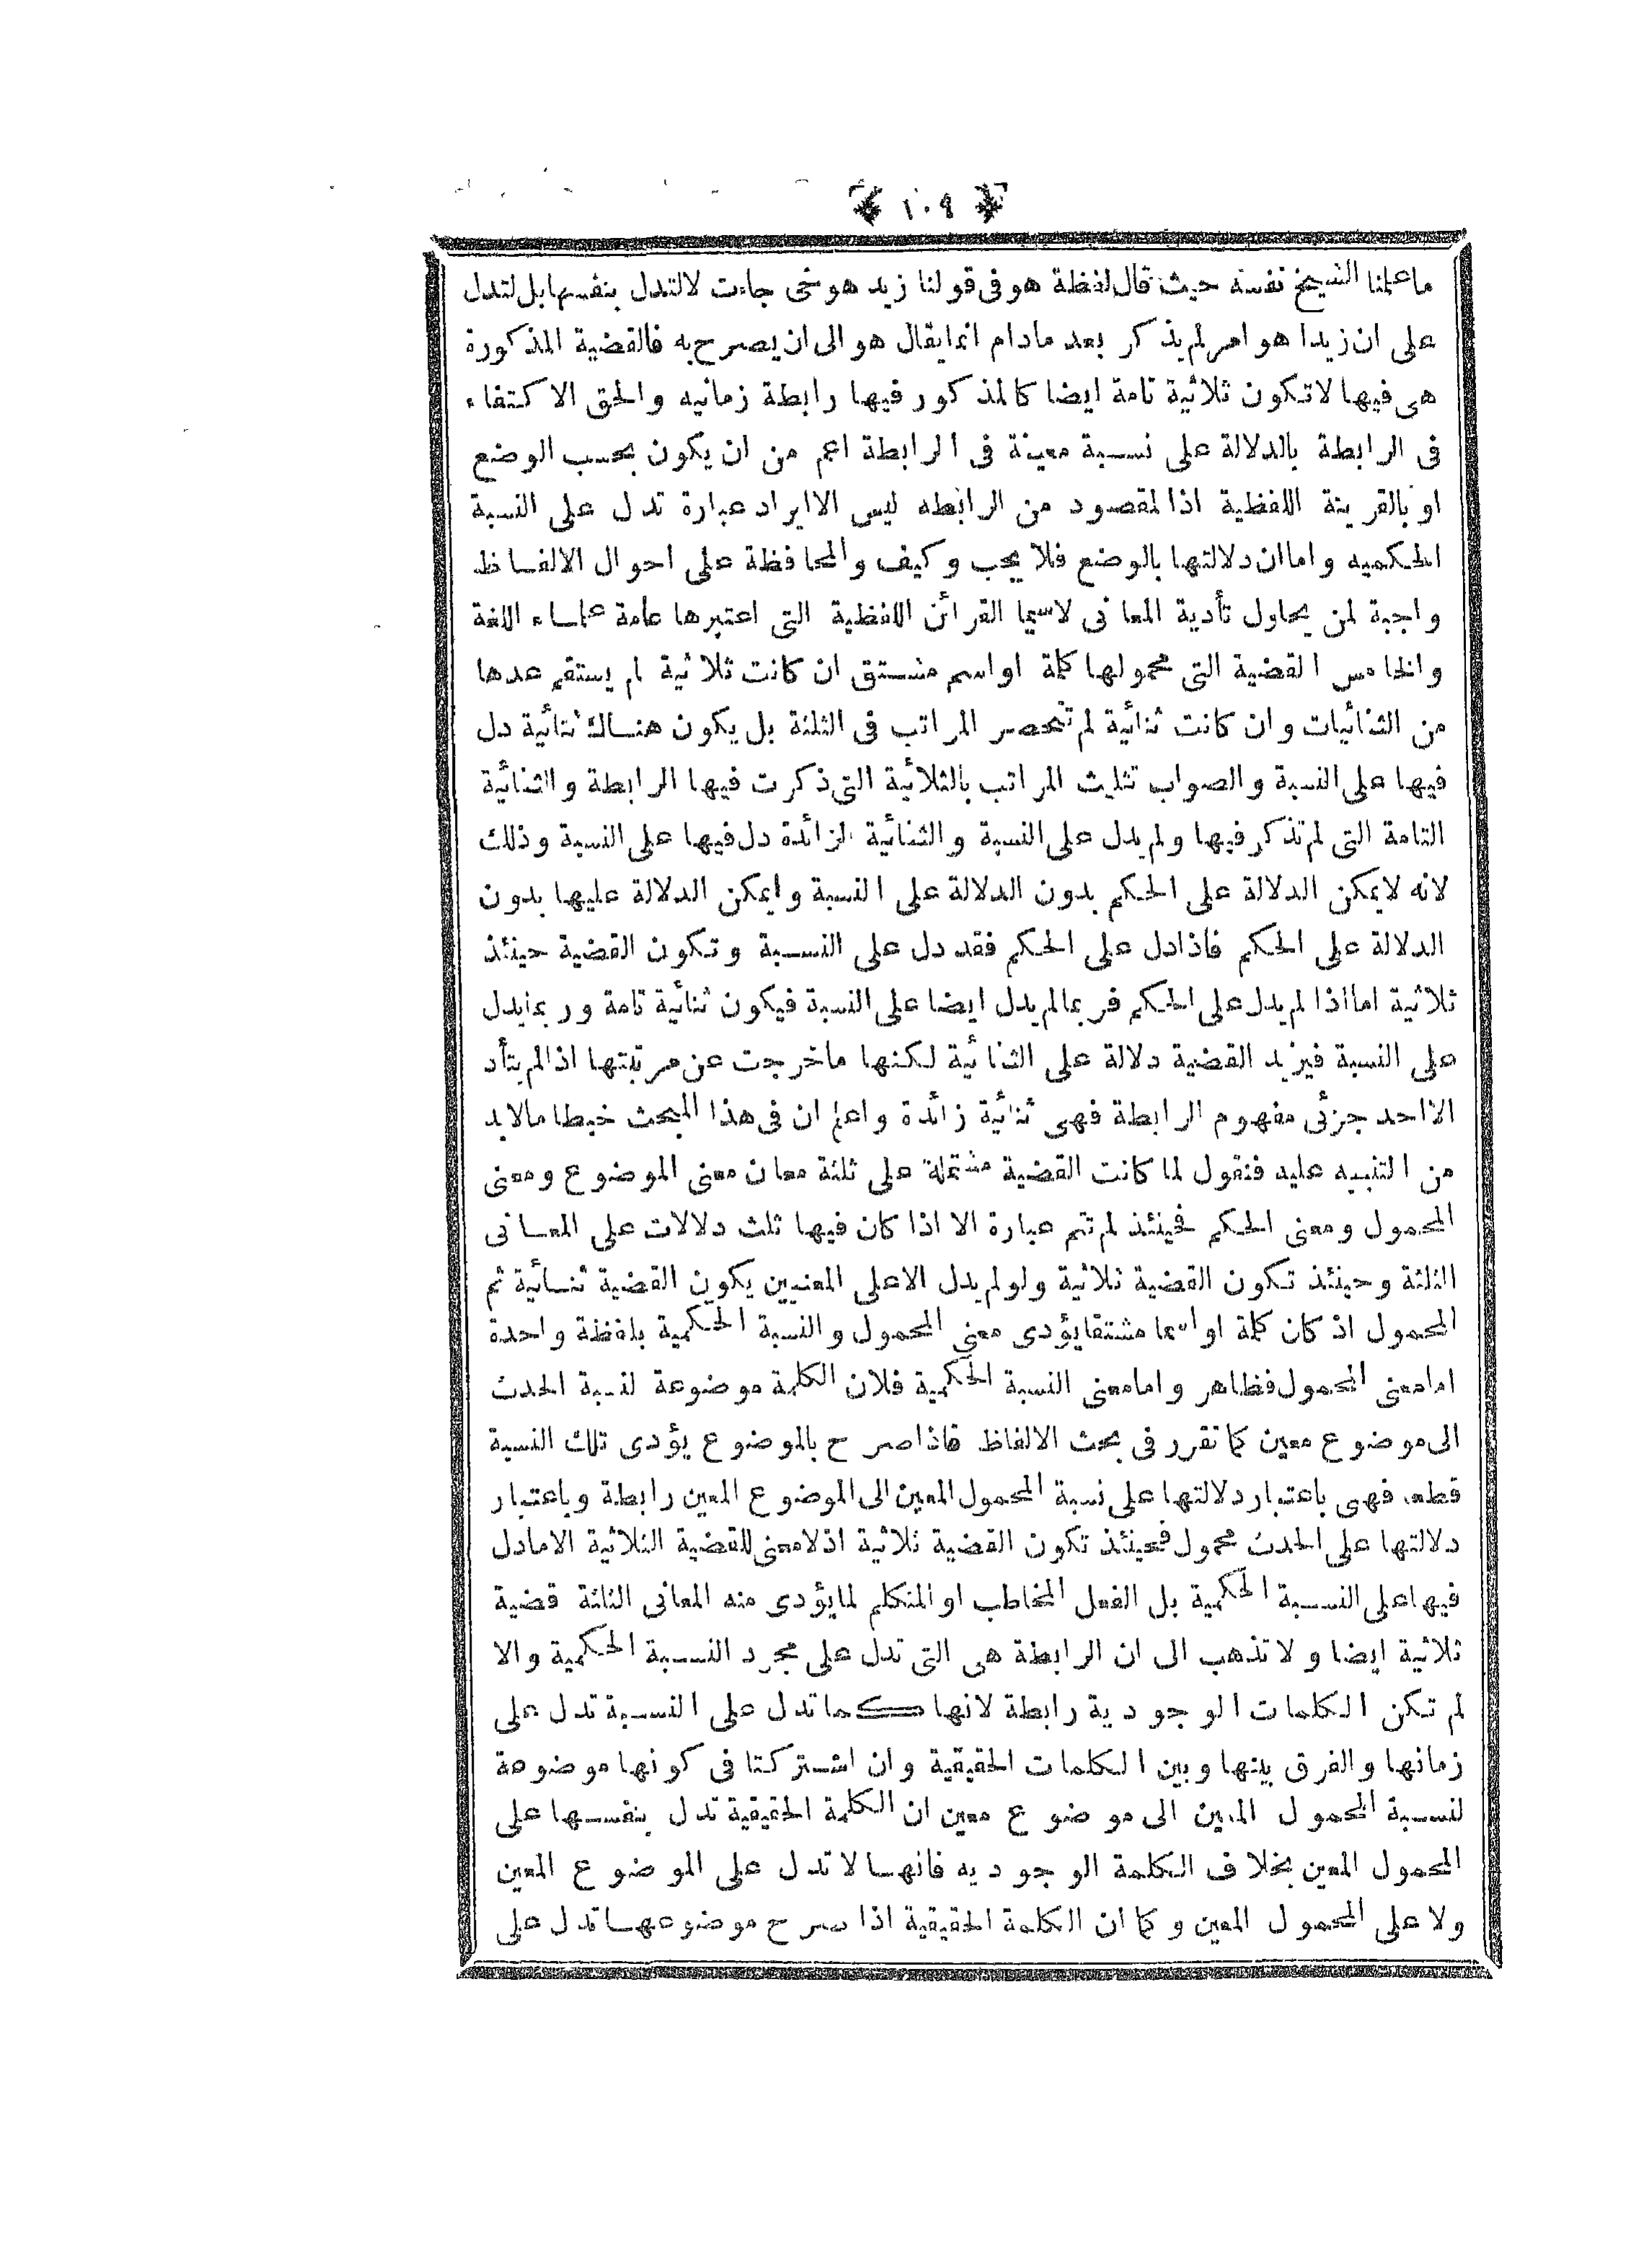 ١٠٩
ما علمنا الشيخ نفسه حيث قال لفظة هو فى قولنا زيد هو حى جاءت لا لتدل بنفسها بل لتدل
على ان زيدا هو امر لم يذكر بعد مادام انما يقال هو الى ان يصرح به فالقضية المذكورة
هى فيها لا تكون ثلاثية تامة ايضا كالمذكور فيها رابطة زمانيه والحق الاكتفاء
فى الرابطة بالدلالة على نسبة معينة فى الرابطة اعم من ان يكون بحسب الوضع
او بالقرينة اللفظية اذ المقصود من الرابطه ليس الا ايراد عبارة تدل على النسبة
الحكميه واما ان دلالتها بالوضع فلا يجب وكيف والمحافظة على احوال الالفاظ
واجبة لمن يحاول تأدية المعانى لاسيما القرائن اللفظية التى اعتبرها عامة علماء اللغة
والخامس القضية التى محمولها كلمة او اسم مشتق ان كانت ثلاثية لم يستقم عدها
من الثنائيات وان كانت ثنائية لم تنحصر المراتب فى الثلثة بل يكون هناك ثنائية دل
فيها على النسبة والصواب تثليث المراتب بالثلاثية التى ذكرت فيها الرابطة والثنائية
التامة التى لم تذكر فيها ولم يدل على النسبة والثنائية الزائدة دل فيها على النسبة وذلك
لانه لا يمكن الدلالة على الحكم بدون الدلالة على النسبة ويمكن الدلالة عليها بدون
الدلالة على الحكم فاذا دل على الحكم فقد دل على النسبة وتكون القضية حينئذ
ثلاثية اما اذا لم يدل على الحكم فربما لم يدل ايضا على النسبة فيكون ثنائية تامة وربما يدل
على النسبة فيزيد القضية دلالة على الثنائية لكنها ما خرجت عن مرتبتها اذ لم يتأد
الا احد جزئى مفهوم الرابطة فهى ثنائية زائدة واعلم ان فى هذا المبحث خبطا ما لا بد
من التنبيه عليه فنقول لما كانت القضية مشتملة على ثلثة معان معنى الموضوع ومعنى
المحمول ومعنى الحكم فحينئذ لم تتم عبارة الا اذا كان فيها ثلث دلالات على المعانى
الثلثة وحينئذ تكون القضية ثلاثية ولو لم يدل الا على المعنيين يكون القضية ثنائية ثم
المحمول اذ كان كلمة او اسما مشتقا يؤدى معنى المحمول والنسبة الحكمية بلفظة واحدة
اما معنى المحمول فظاهر واما معنى النسبة الحكمية فلان الكلمة موضوعة لنسبة الحدث
الى موضوع معين كما تقرر فى بحث الالفاظ فاذا صرح بالموضوع يؤدى تلك النسبة
قطعا فهى باعتبار دلالتها على نسبة المحمول المعين الى الموضوع المعين رابطة وباعتبار
دلالتها على الحدث محمول فحينئذ تكون القضية ثلاثية اذ لا معنى للقضية الثلاثية الا ما دل
فيها على النسبة الحكمية بل الفعل المخاطب او المتكلم لما يؤدى منه المعانى الثلثة قضية
ثلاثية ايضا ولا تذهب الى ان الرابطة هى التى تدل على مجرد النسبة الحكمية والا
لم تكن الكلمات الوجودية رابطة لانها كما تدل على النسبة تدل على
زمانها والفرق بينها وبين الكلمات الحقيقية وان اشتركتا فى كونها موضوعة
لنسبة المحمول المعين الى موضوع معين ان الكلمة الحقيقية تدل بنفسها على
المحمول المعين بخلاف الكلمة الوجوديه فانها لا تدل على الموضوع المعين
ولا على المحمول المعين وكما ان الكلمة الحقيقية اذا صرح موضوعها تدل على